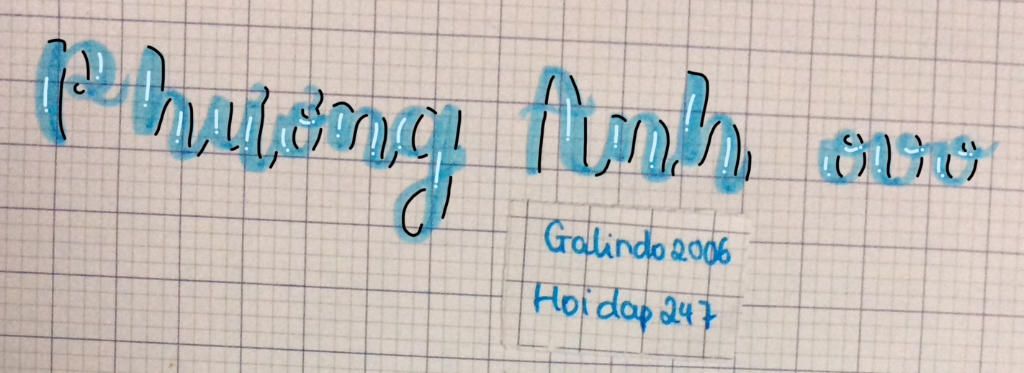 Phương Anh ovo
Galindo2006
Hoi dap 247